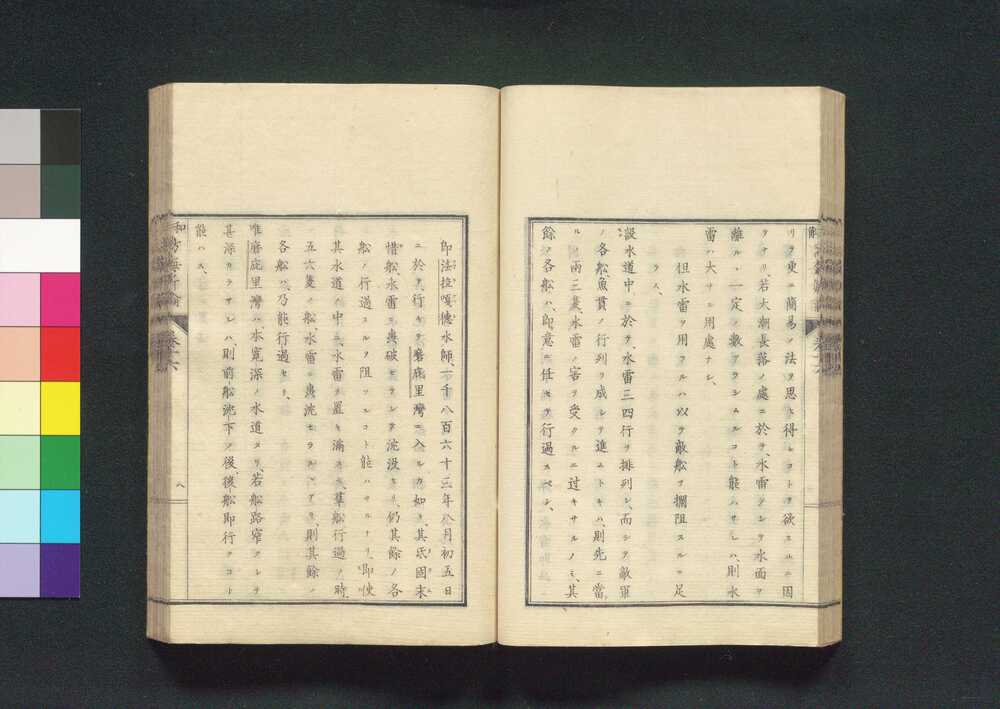 リテ更ニ簡易ノ法ヲ思ヒ得ンコトヲ欲スルニ因
ヲナリ、若大潮長落ノ處ニ於テ、水雷ヲシテ水面ヲ
離ルヽ一定ノ數アラシムルコト能ハサレハ、則水
雷ハ大ヒニ用處ナシ、
但水雷ヲ用フルハ以テ敵船ヲ攔阻スルニ足
ラス、
設水道中ニ於テ、水雷三四行ヲ排列シ、而シテ敵軍
ノ各船、魚貫ノ行列ヲ成シテ進ムトキハ、則先ニ當
ルノ兩三隻、水雷ノ害ヲ受クルニ過キサルノミ、其
餘ノ各船ハ、卽意ニ任セテ行過スベシ、
卽法拉嘎德水師、一千八百六十三年八月初五日
ニ於テ、行キテ磨庇里灣ニ入ルカ如シ、其氐固末
惜船、水雷ニ轟破セラレテ沈没セリ、仍其餘ノ各
船ノ行過スルヲ阻ツルコト能ハサルナリ、卽使
其水道ノ中ニ、水雷ヲ置キ滿ルモ、羣船行過ノ時、
五六隻ノ船、水雷ニ轟沈セラルヽアリテ、則其餘ノ
各船ハ乃能行過セリ、
惟磨庇里灣ハ、水寬深ノ水道ナリ、若船路窄クシテ
甚深カラサレハ、則前船沈下ノ後、後船卽行クコト
能ハス、
八